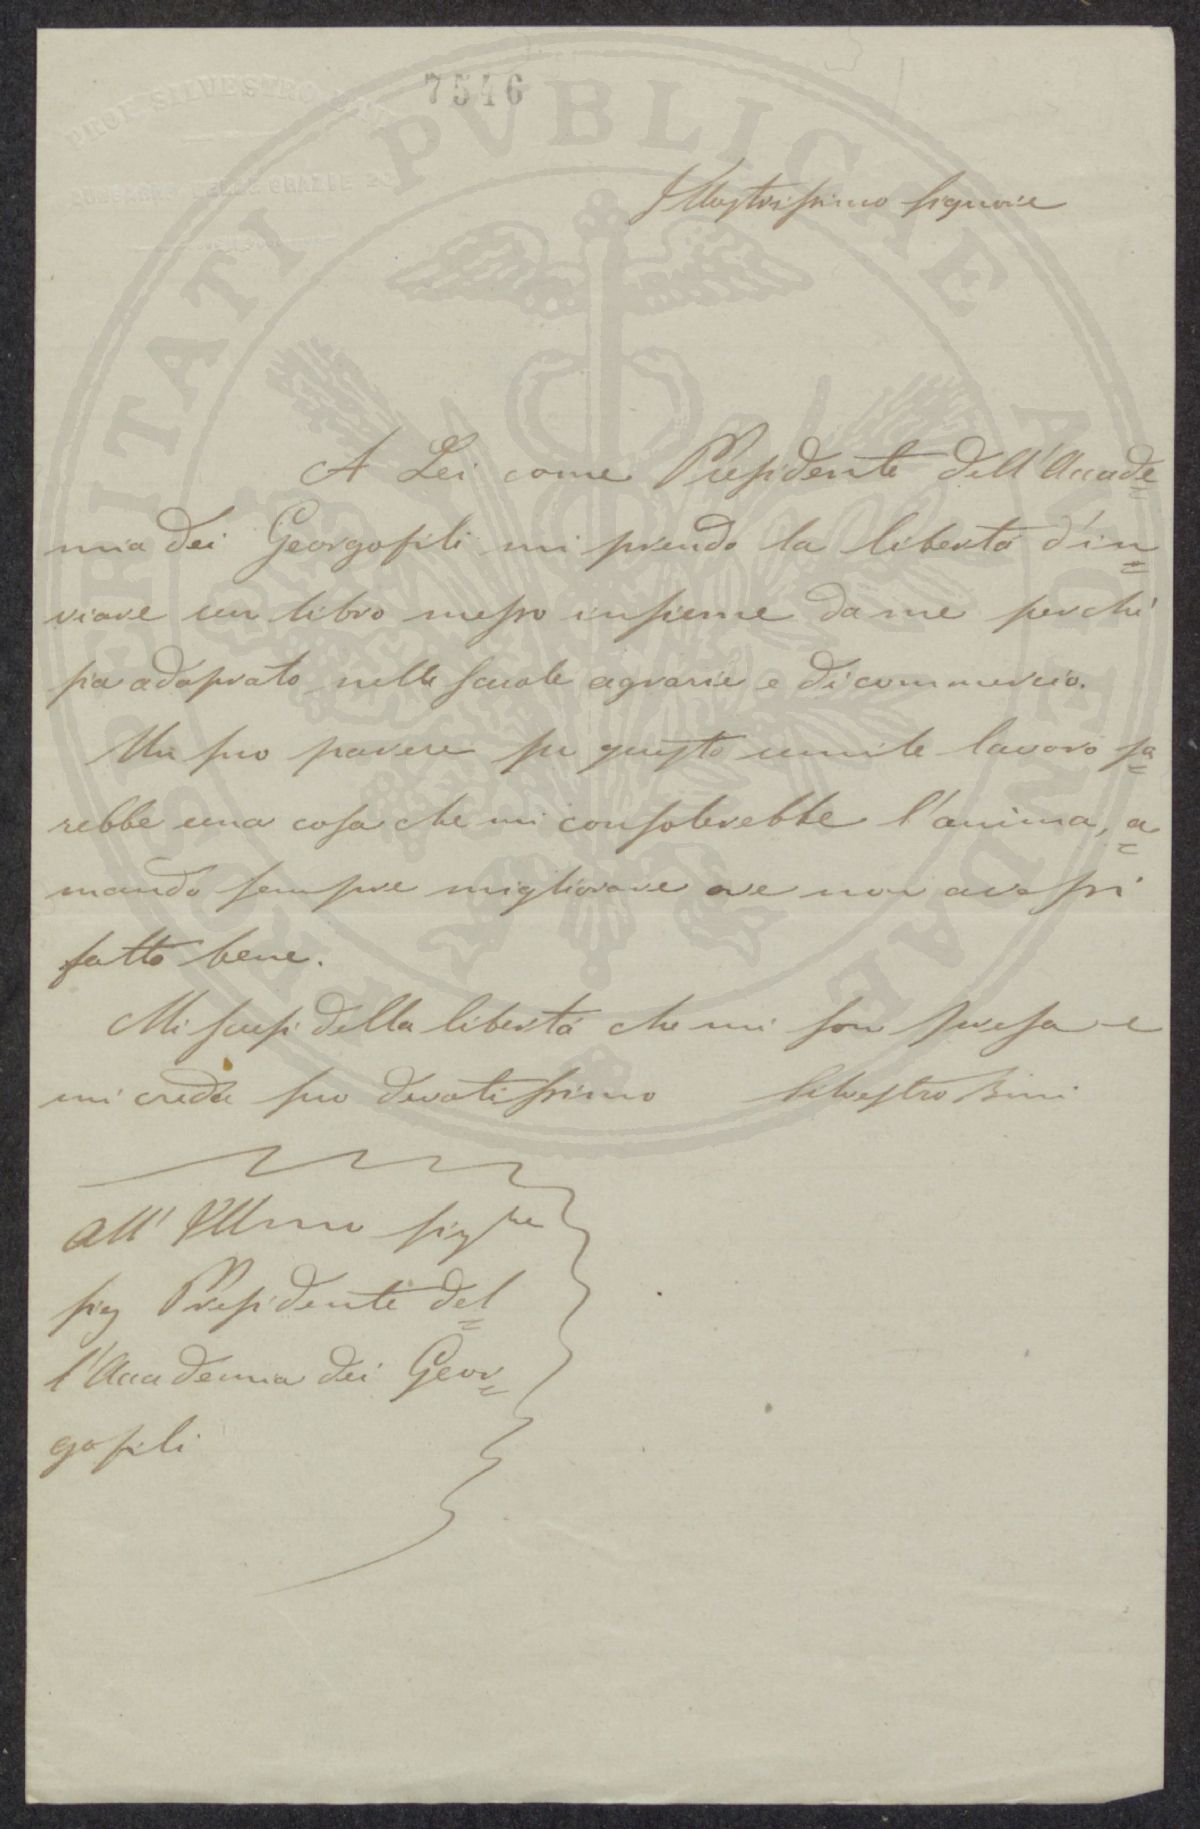 PROF SILVESTRO BINI
7546
LUNGARNO DELLE GRAZIE
PROSPERITATI PVBLICAE AVGENDAE
Illustrissimo signore
A Lei come Presidente dell'Accade=
mia dei Georgofili mi prendo la libertà d'in=
viare un libro messo insieme da me perché
sia adoprato nelle scuole agrarie e di commercio.
Un suo parere su questo umile lavoro sa=
rebbe una cosa che mi consolerebbe l'anima, a=
mando sempre migliorare ove non avessi
fatto bene.
Mi scusi della libertà che mi son presa e
mi creda suo devotissimo Silvestro Bini
All' Illmo sigre
sig Presidente del=
l'Accademia dei Geor=
gofili